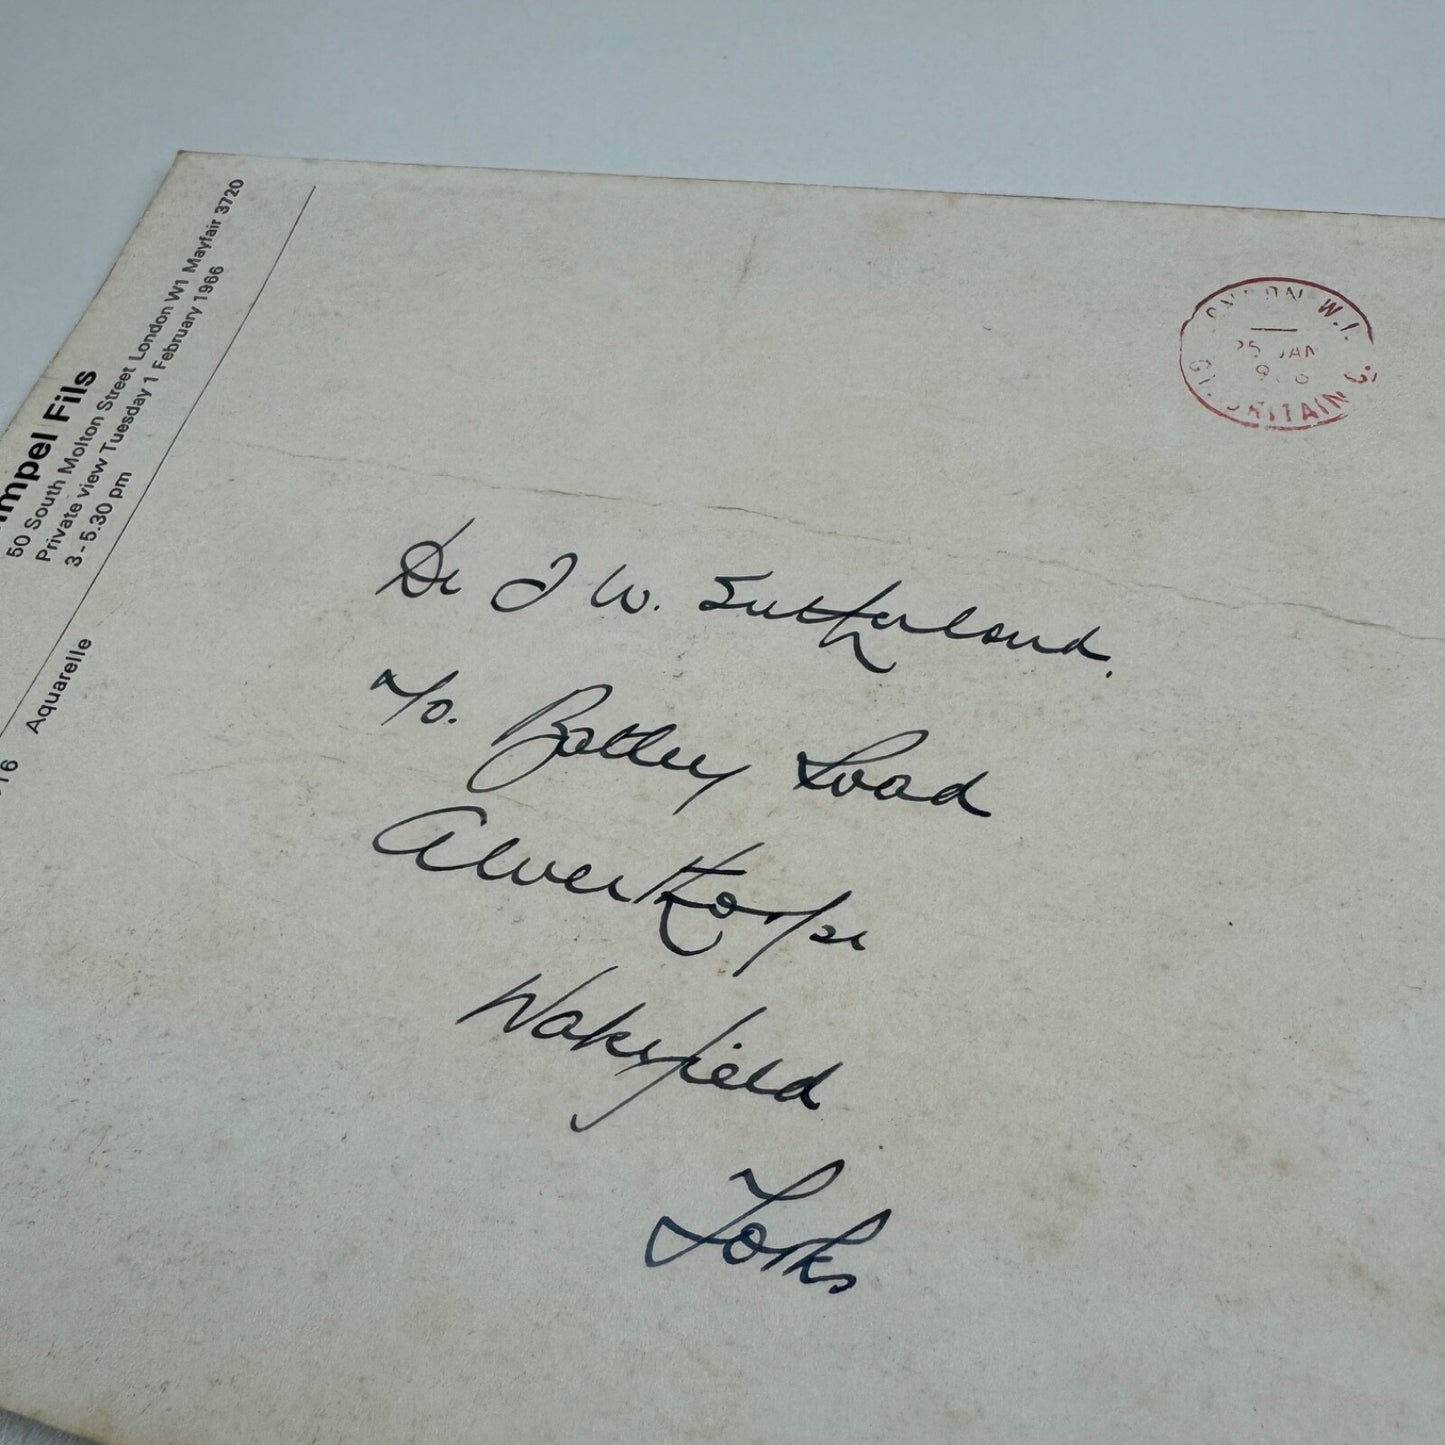 mpel Fils
50 South Molton Street London W1 Mayfair 3720
Private view Tuesday 1 February 1966
3 - 5.30 pm
16 Aquarelle
LONDON W.1.
25 JAN
GT. BRITAIN
Dr J W. Sutherland.
70. Batley Road
Alverthorpe
Wakefield
Yorks